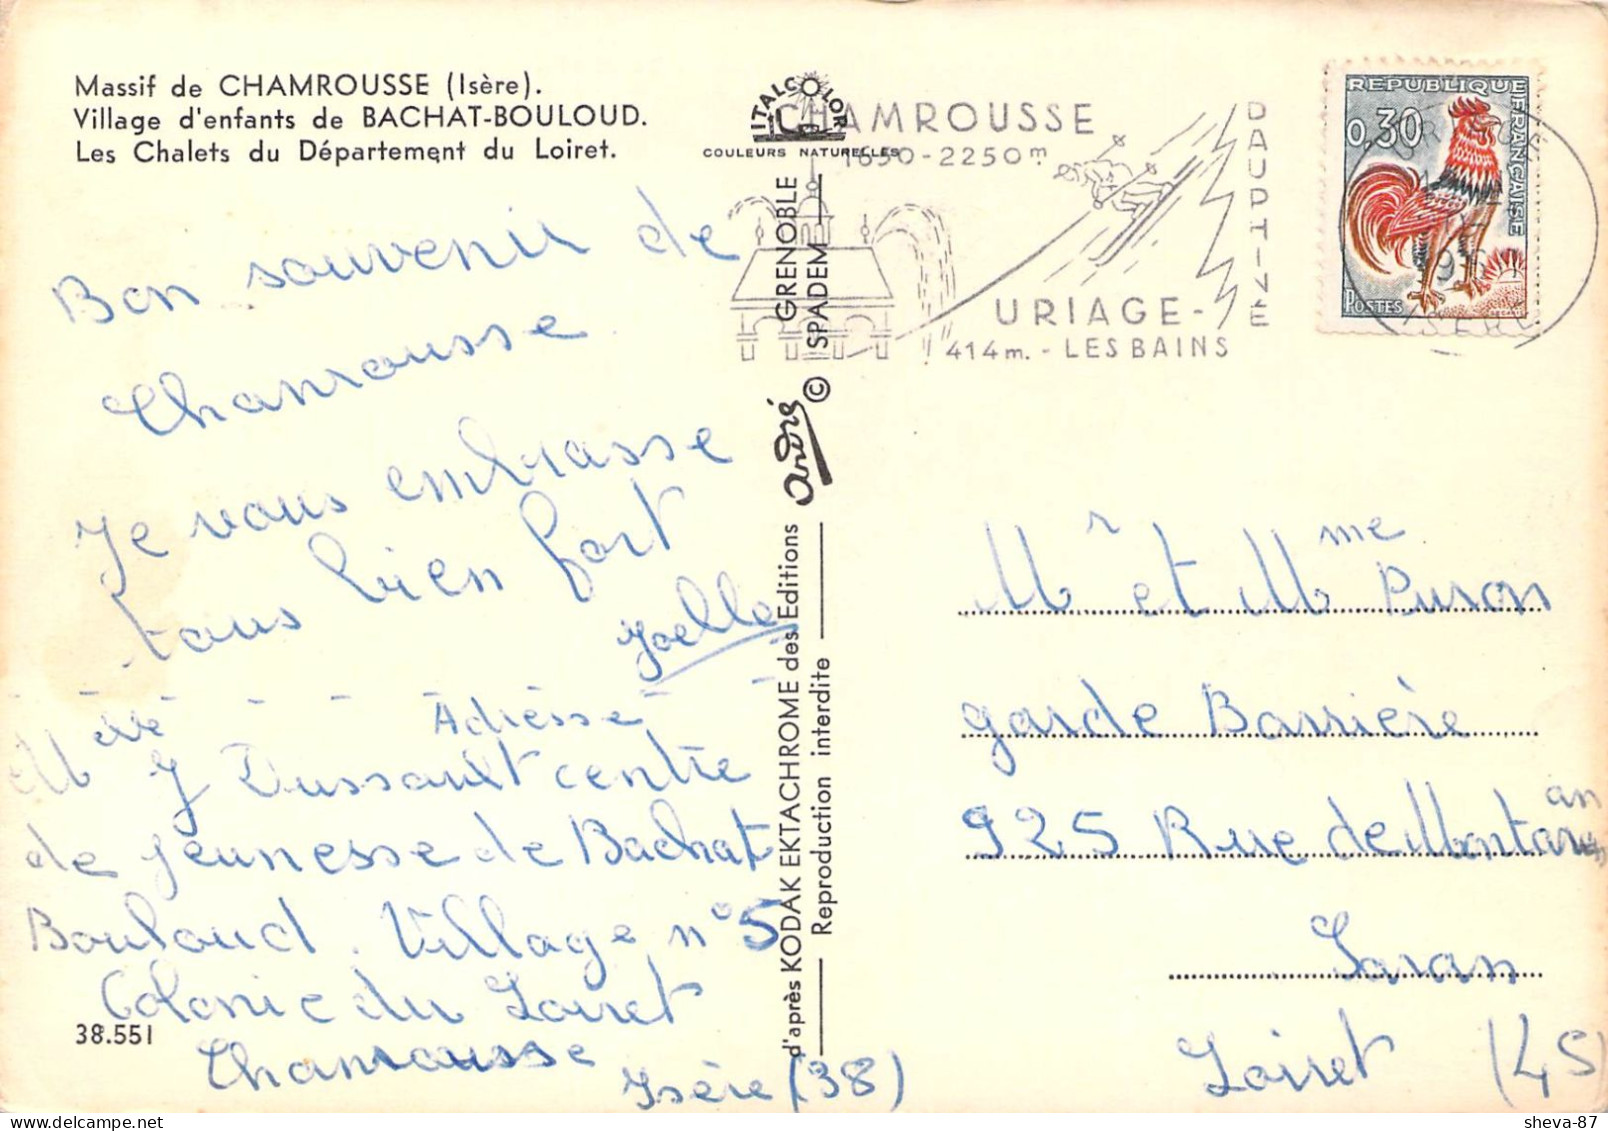 Massif de CHAMROUSSE (Isère).
Village d'enfants de BACHAT-BOULOUD.
Les Chalets du Département du Loiret.
Bon souvenir de
Chamrousse
Je vous embrasse
tous bien fort
Joelle
Adresse
J Dussault centre
de jeunesse de Bachat
Bouloud. Village n° 5
Colonie du Loiret
Chamrousse
Isère (38)
38.551
ITALCOLOR
COULEURS NATURELLES
d'après KODAK EKTACHROME des Editions André GRENOBLE
Reproduction interdite © SPADEM
CHAMROUSSE
1650-2250m
DAUPHINÉ
URIAGE-
414m. - LES BAINS
REPUBLIQUE FRANÇAISE
0,30
POSTES
ISERE
Mr et Mme Puron
garde Barrière
925 Rue de Montaran
Saran
Loiret (45
sheva-87